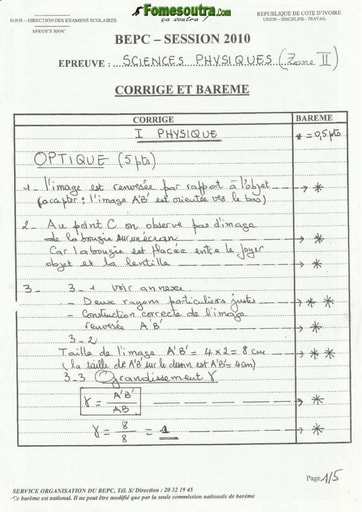 Fomesoutra.com
ça soutra !
SOUS – DIRECTION DES EXAMENS SCOLAIRES
SERVICE BEPC
REPUBLIQUE DE COTE D'IVOIRE
UNION – DISCIPLINE – TRAVAIL
BEPC – SESSION 2010
EPREUVE : SCIENCES PHYSIQUES (Zone II)
CORRIGE ET BAREME
CORRIGE BAREME
I PHYSIQUE * = 0,5pts
OPTIQUE (5pts)
1 - l'image est renversée par rapport à l'objet
(accepter : l'image A'B' est orientée vers le bas) *
2 - Au point C on observe pas d'image
de la bougie sur un écran *
Car la bougie est placée entre le foyer
objet et la lentille *
3 - 3 - 1 voir annexe
- Deux rayons particuliers justes * *
- Construction correcte de l'image
renversée A'B' *
3 - 2
Taille de l'image A'B' = 4 x 2 = 8 cm * *
(la taille de A'B' sur le dessin est A'B' = 4cm)
3 - 3 Grandissement γ
γ = A'B' / AB *
γ = 8 / 8 = 1 *
Page 1/5
SERVICE ORGANISATION DU BEPC, Tél. S/ Direction : 20 32 19 45
Ce barème est national. Il ne peut être modifié que par la seule commission nationale de barème